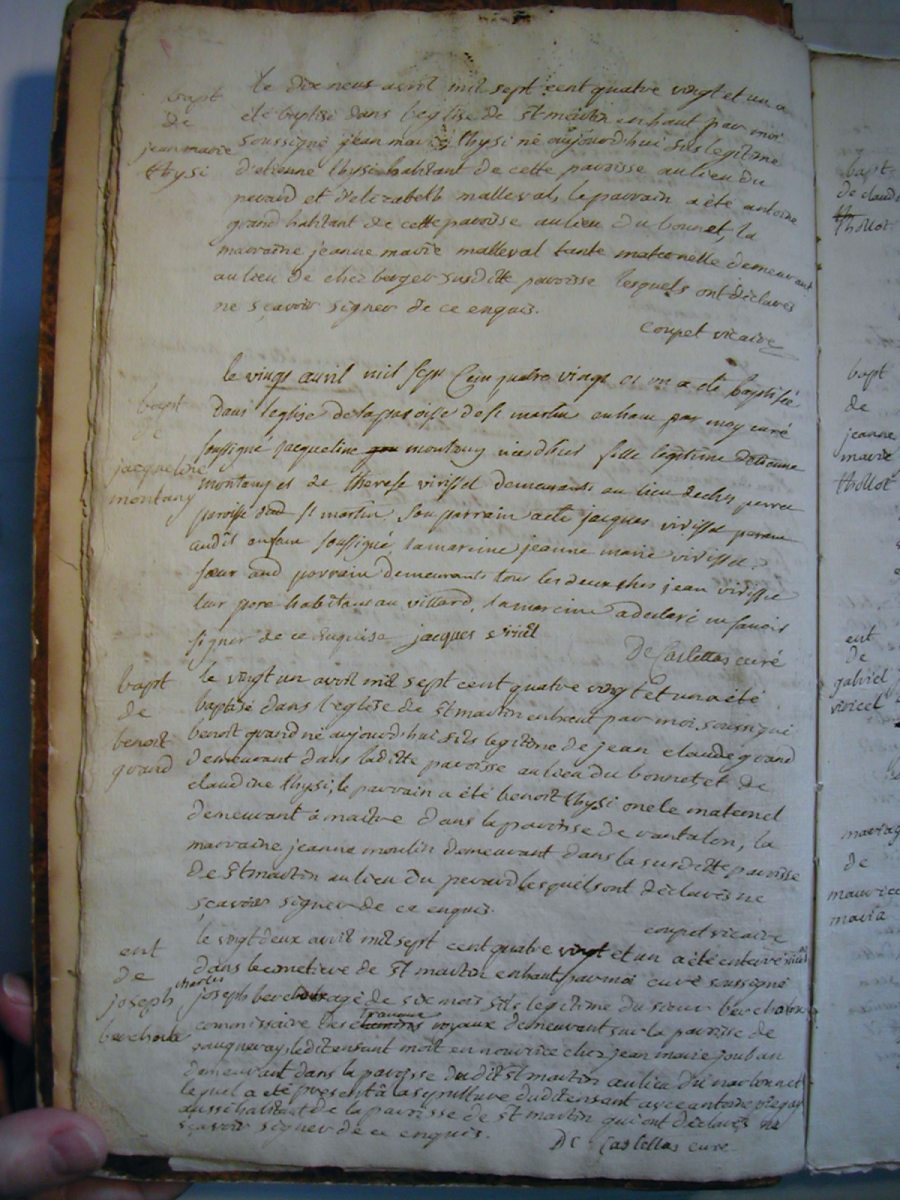 bapt
de
jean marie
thysi
le dix neuf avril mil sept cent quatre vingt et un a
été baptisé dans l'eglise de St martin en haut par moi
soussigné jean marie thysi né aujourd'hui fils legitime
d'etienne thysi habitant de cette paroisse au lieu du
peraud et d'elizabeth malleval, le parrain a été antoine
grand habitant de cette paroisse au lieu du bonnet, la
marraine jeanne marie malleval tante maternelle demeurant
au lieu de chez berger susditte paroisse lesquels ont declarés
ne sçavoir signer de ce enquis.
coupet vicaire
bapt
de
jacqueline
montany
le vingt avril mil sept Cent quatre vingt et un a eté baptisée
dans l'eglise de la paroisse de st martin en haut par moy curé
soussigné jacqueline montany née d'hier fille legitime d'etienne
montany et de therese virissel demeurants au lieu de chez perret
paroisse dud st martin. Son parrain a eté jacques virissel
audit enfant soussigné, la marraine jeanne marie virissel
sœur aud parrain demeurants tous les deux chez jean virissel
leur pere habitant au villard, la marraine a declaré ne savoir
signer de ce enquise jacques
De Caslettas curé
bapt
de
benoit
grand
le vingt un avril mil sept cent quatre vingt et un a été
baptisé dans l'eglise de St martin en haut par moi soussigné
benoit grand né aujourd'hui fils legitime de jean claude grand
demeurant dans laditte paroisse au lieu du bonnet et de
claudine thysi, le parrain a été benoit thysi oncle maternel
demeurant à maitre dans la paroisse de vantalon, la
marraine jeanne moulin demeurant dans la susditte paroisse
de St martin au lieu du peraud lesquels ont declarés ne
sçavoir signer de ce enquis.
coupet vicaire
ent
de
joseph charles
berchoux
le vingt deux avril mil sept cent quatre vingt et un a été enterré
dans le cimetiere de St martin en haut par moi curé soussigné
joseph berchoux agé de six mois fils legitime du sieur berchoux
commissaire des travaux royaux demeurant sur la paroisse de
vaugneray, ledit enfant mort en nourrice chez jean marie jouban
demeurant dans la paroisse dudit St martin au lieu du narbonnet
lequel a été present à la sepulture dudit enfant avec antoine
aussi habitant de la paroisse de St martin qui ont declarés ne
sçavoir signer de ce enquis.
De Caslettas curé
bapt
de claud
thollot
bapt
de
jeanne
marie
thollot
ent
de
gabriel
viricel
mariag
de
maurice
maria